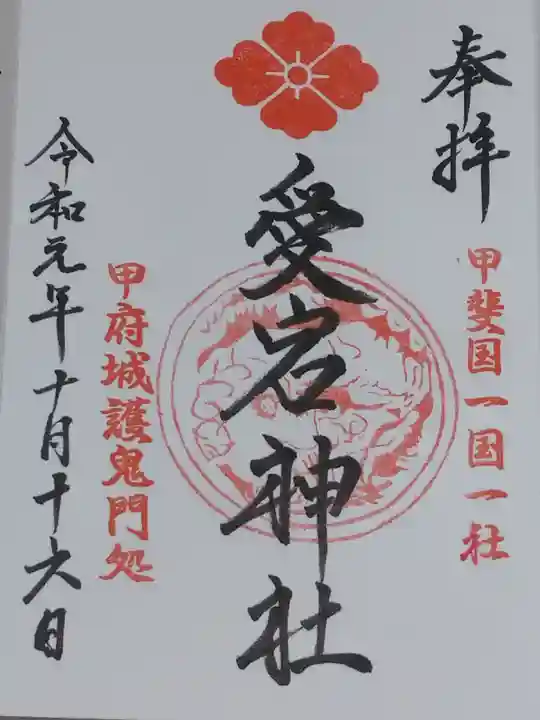 奉拝
甲斐国一国一社
愛宕神社
甲府城護鬼門処
令和元年十月十六日